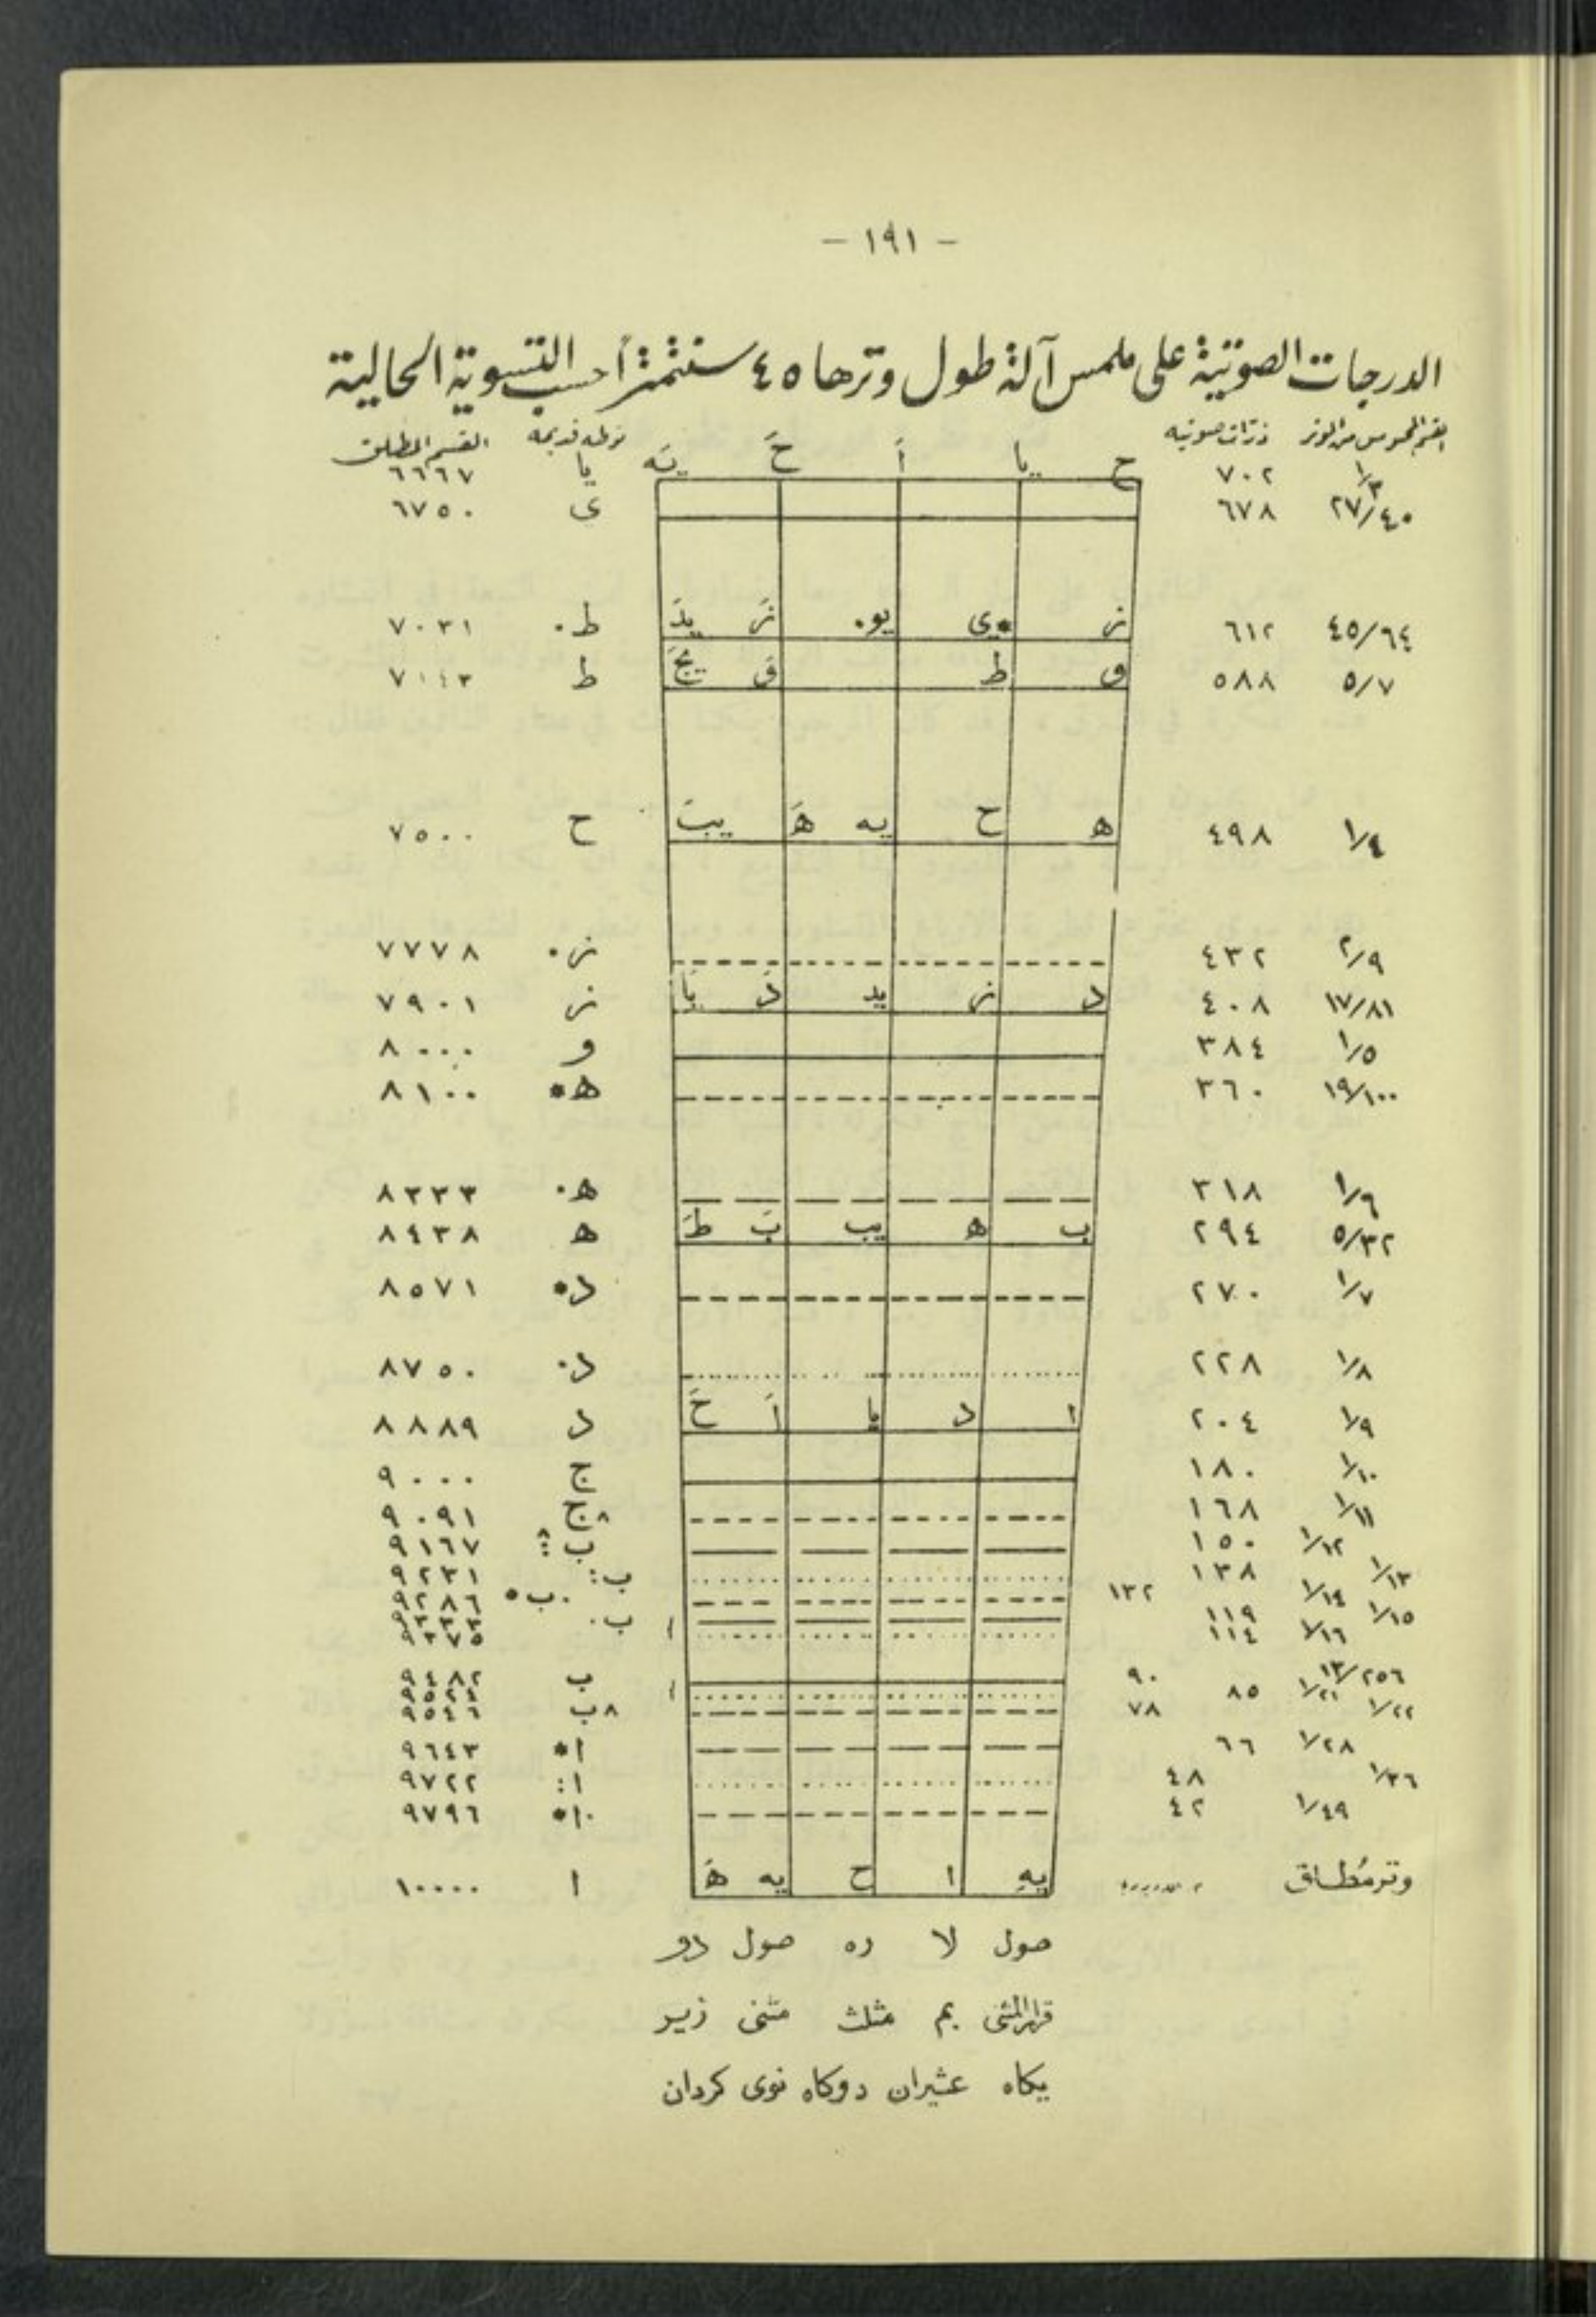 - ١٩١ -
الدرجات الصوتية على ملمس آلة طول وترها ٤٥ سنتمتراً حسب التسوية الحالية
القسم المحبوس من الوتر ذرات صوتيه نوطه قديمة القسم المطلق
ح يا أَ حَ يَه
١/٣ ٧٠٢ يا ٦٦٦٧
٢٧/٤٠ ٦٧٨ ى ٦٧٥٠
٤٥/٦٤ ٦١٢ ز ى٠ يو٠ زَ يدَ ط٠ ٧٠٣١
٥/٧ ٥٨٨ و ط وَ يجَ ط ٧١٤٣
١/٤ ٤٩٨ ه ح يه هَ يبَ ح ٧٥٠٠
٢/٩ ٤٣٢ ز٠ ٧٧٧٨
١٧/٨١ ٤٠٨ د ز يد دَ يَا ز ٧٩٠١
١/٥ ٣٨٤ و ٨٠٠٠
١٩/١٠٠ ٣٦٠ ه• ٨١٠٠
١/٦ ٣١٨ ه٠ ٨٣٣٣
٥/٣٢ ٢٩٤ ب ه يب بَ طَ ه ٨٤٣٨
١/٧ ٢٧٠ د• ٨٥٧١
١/٨ ٢٢٨ د٠ ٨٧٥٠
١/٩ ٢٠٤ ا د يا أَ حَ د ٨٨٨٩
١/١٠ ١٨٠ ج ٩٠٠٠
١/١١ ١٦٨ ^ج ٩٠٩١
١/١٢ ١٥٠ ب ٩١٦٧
١/١٣ ١٣٨ ب: ٩٢٣١
١/١٤ ١٣٢ ٠ب• ٩٢٨٦
١/١٥ ١١٩ ب٠ ٩٣٣٣
١/١٦ ١١٤ ٩٣٧٥
١٣/٢٥٦ ٩٠ ب ٩٤٨٢
١/٢١ ٨٥ ٩٥٢٤
١/٢٢ ٧٨ ^ب ٩٥٤٦
١/٢٨ ٦٦ ا• ٩٦٤٣
١/٣٦ ٤٨ ا: ٩٧٢٢
١/٤٩ ٤٢ ٠ا• ٩٧٩٦
وتر مطلق يه ا ح يه هَ ا ١٠٠٠٠
صول لا ره صول دو
قرار المثنى بم مثلث مثنى زير
يكاه عشيران دوكاه نوى كردان